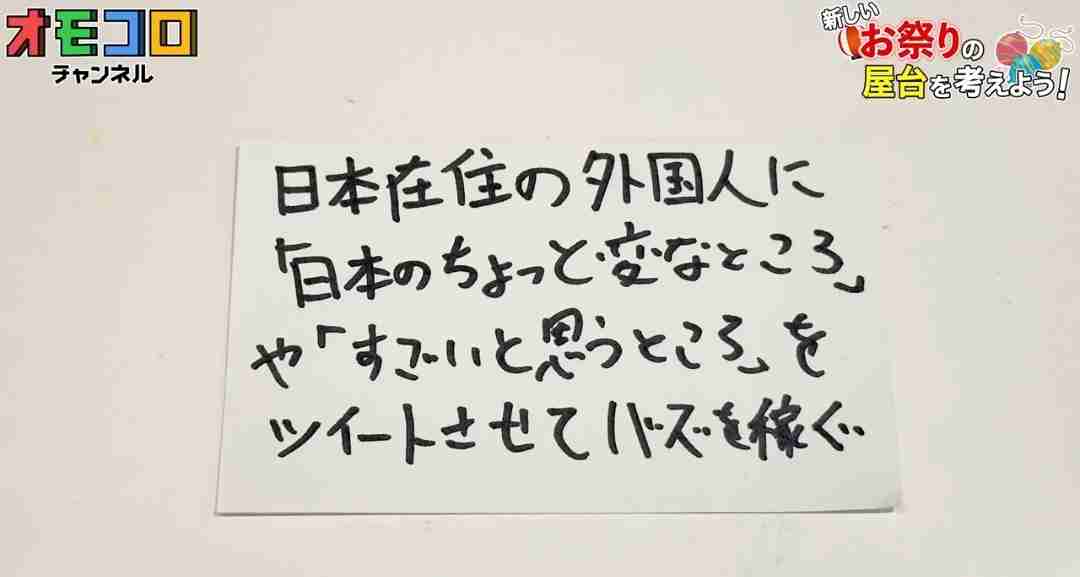 オモコロ
チャンネル
新しい
お祭りの
屋台を考えよう!
日本在住の外国人に
「日本のちょっと変なところ」
や「すごいと思うところ」を
ツイートさせてバズを稼ぐ